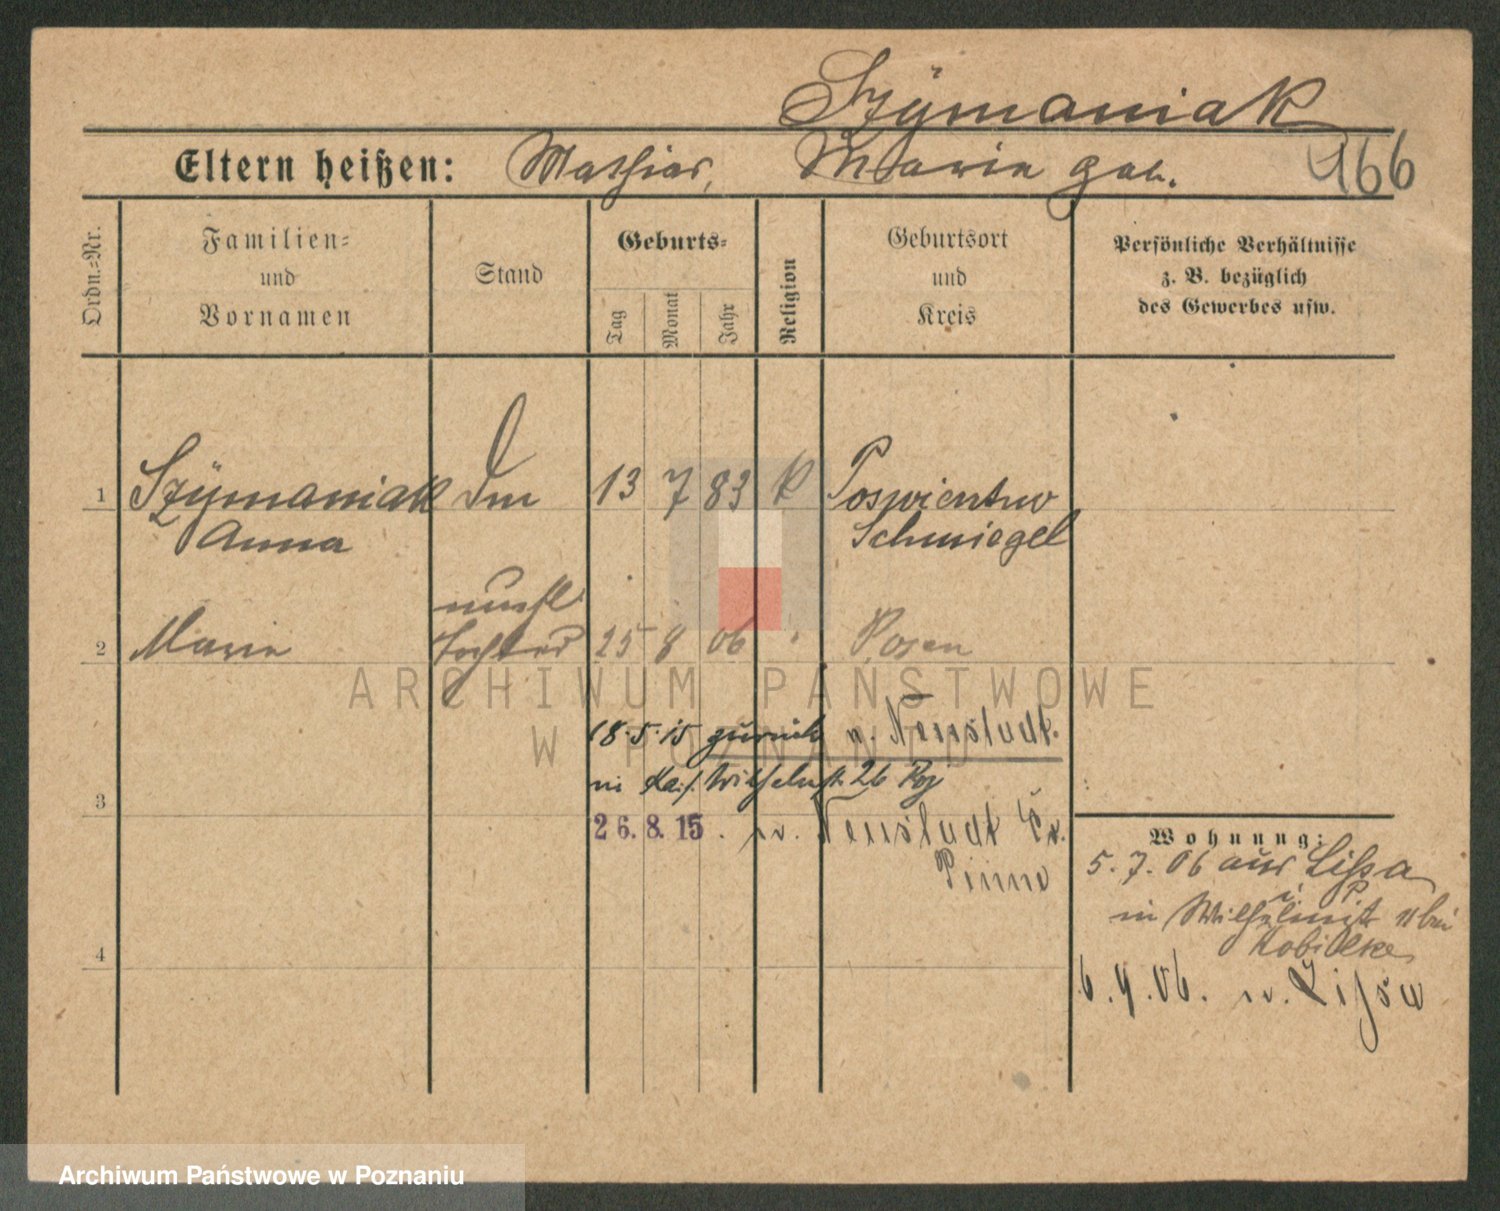 Szymaniak
Eltern heißen: Mathias, Maria geb. 466
Ordn.=Nr.
Familien=
und
Vornamen
Stand
Geburts=
Tag
Monat
Jahr
Religion
Geburtsort
und
Kreis
Persönliche Verhältnisse
z. B. bezüglich
des Gewerbes usw.
1 Szymaniak 13 7 83 K
Anna
Schmiegel
unehl.
2 Maria Tochter 25 8 06 " Posen
18.5.15 zurück n. Neustadt.
in 26
3
26.8.15. n. Neustadt Kr.
Pinne
Wohnung:
5.7.06 aus Lissa
i. P.
in 11 bei
4
6.9.06. n. Lissa
ARCHIWUM PAŃSTWOWE
W POZNANIU
Archiwum Państwowe w Poznaniu